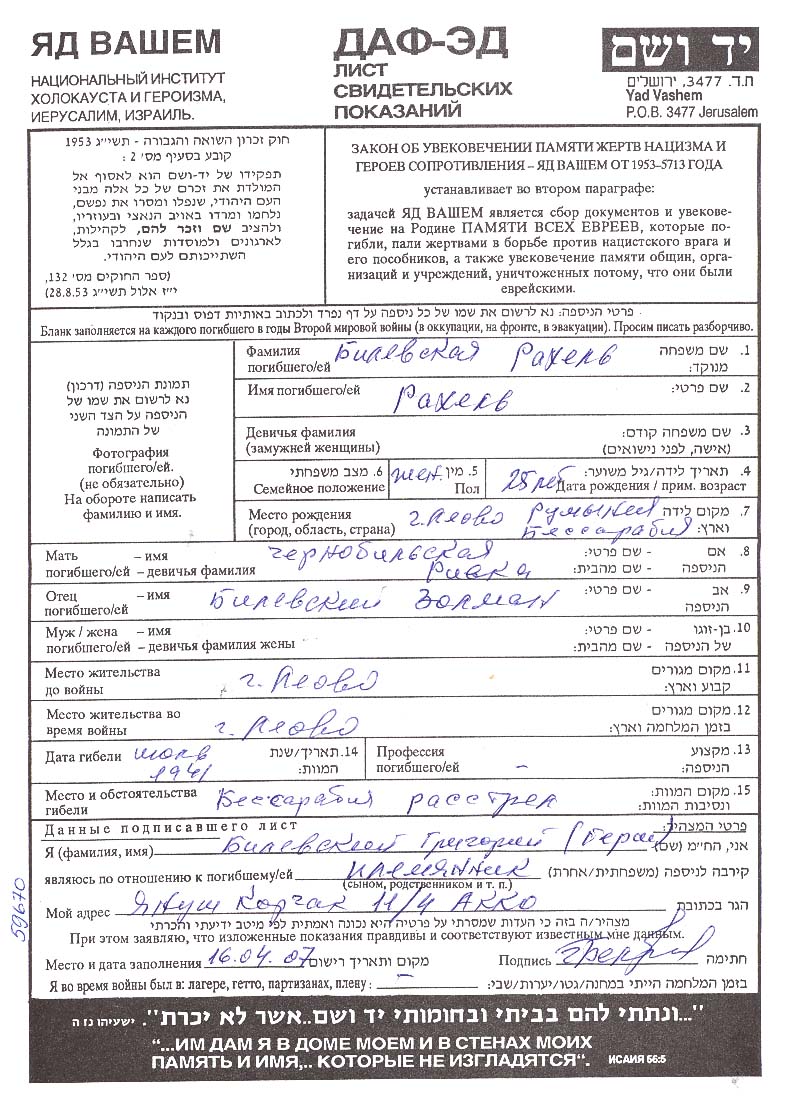 ЯД ВАШЕМ
НАЦИОНАЛЬНЫЙ ИНСТИТУТ
ХОЛОКАУСТА И ГЕРОИЗМА,
ИЕРУСАЛИМ, ИЗРАИЛЬ.
ДАФ-ЭД
ЛИСТ
СВИДЕТЕЛЬСКИХ
ПОКАЗАНИЙ
יד ושם
ת.ד. 3477, ירושלים
Yad Vashem
P.O.B. 3477 Jerusalem
חוק זכרון השואה והגבורה - תשי״ג 1953
קובע בסעיף מס׳ 2 :
תפקידו של יד-ושם הוא לאסוף אל
המולדת את זכרם של כל אלה מבני
העם היהודי, שנפלו ומסרו את נפשם,
נלחמו ומרדו באויב הנאצי ובעוזריו,
ולהציב שם וזכר להם, לקהילות,
לארגונים ולמוסדות שנחרבו בגלל
השתייכותם לעם היהודי.
(ספר החוקים מס׳ 132,
י״ז אלול תשי״ג 28.8.53)
ЗАКОН ОБ УВЕКОВЕЧЕНИИ ПАМЯТИ ЖЕРТВ НАЦИЗМА И
ГЕРОЕВ СОПРОТИВЛЕНИЯ – ЯД ВАШЕМ ОТ 1953–5713 ГОДА
устанавливает во втором параграфе:
задачей ЯД ВАШЕМ является сбор документов и увекове-
чение на Родине ПАМЯТИ ВСЕХ ЕВРЕЕВ, которые по-
гибли, пали жертвами в борьбе против нацистского врага и
его пособников, а также увековечение памяти общин, орга-
низаций и учреждений, уничтоженных потому, что они были
еврейскими.
פרטי הניספה: נא לרשום את שמו של כל ניספה על דף נפרד ולכתוב באותיות דפוס ובנקוד .
Бланк заполняется на каждого погибшего в годы Второй мировой войны (в оккупации, на фронте, в эвакуации). Просим писать разборчиво.
תמונת הניספה (דרכון)
נא לרשום את שמו של
הניספה על הצד השני
של התמונה
Фотография
погибшего/ей.
(не обязательно)
На обороте написать
фамилию и имя.
Фамилия
погибшего/ей Билевская Рахель
1. שם משפחה
מנוקד:
Имя погибшего/ей Рахель 2. שם פרטי:
Девичья фамилия
(замужней женщины)
3. שם משפחה קודם:
(אישה, לפני נישואים)
6. מצב משפחתי
Семейное положение
жен. 5. מין
Пол
4. תאריך לידה/גיל משוער:
25 лет Дата рождения / прим. возраст
Место рождения
(город, область, страна) г. Леово Румыния
Бессарабия
7. מקום לידה
וארץ:
Мать – имя
погибшего/ей – девичья фамилия
Чернобильская
Ривка
8. אם - שם פרטי:
הניספה - שם מהבית:
Отец – имя
погибшего/ей Билевский Золман
9. אב - שם פרטי:
הניספה
Муж / жена – имя
погибшего/ей – девичья фамилия жены
10. בן-זוגו - שם פרטי:
של הניספה - שם מהבית:
Место жительства
до войны г. Леово
11. מקום מגורים
קבוע וארץ:
Место жительства во
время войны г. Леово
12. מקום מגורים
בזמן המלחמה וארץ:
Дата гибели июль
1941
14. תאריך/שנת
המוות:
Профессия
погибшего/ей –
13. מקצוע
הניספה:
Место и обстоятельства
гибели Бессарабия расстрел
15. מקום המוות:
ונסיבות המוות:
Данные подписавшего лист פרטי המצהיר:
Я (фамилия, имя) Билевский Григорий אני, החי״מ (שם)
являюсь по отношению к погибшему/ей племянник קירבה לניספה (משפחתית/אחרת)
(сыном, родственником и т. п.)
Мой адрес Януш Корчак 11/4 АККО הגר בכתובת
מצהיר/ה בזה כי העדות שמסרתי על פרטיה היא נכונה ואמיתית לפי מיטב ידיעתי והכרתי
При этом заявляю, что изложенные показания правдивы и соответствуют известным мне данным.
Место и дата заполнения 16.04.07 מקום ותאריך רישום Подпись חתימה
Я во время войны был в: лагере, гетто, партизанах, плену : – בזמן המלחמה הייתי במחנה/גטו/יערות/שבי:
59670
"...ונתתי להם בביתי ובחומותי יד ושם..אשר לא יכרת". ישעיהו נז ה
“...ИМ ДАМ Я В ДОМЕ МОЕМ И В СТЕНАХ МОИХ
ПАМЯТЬ И ИМЯ,.. КОТОРЫЕ НЕ ИЗГЛАДЯТСЯ“. ИСАИЯ 56:5